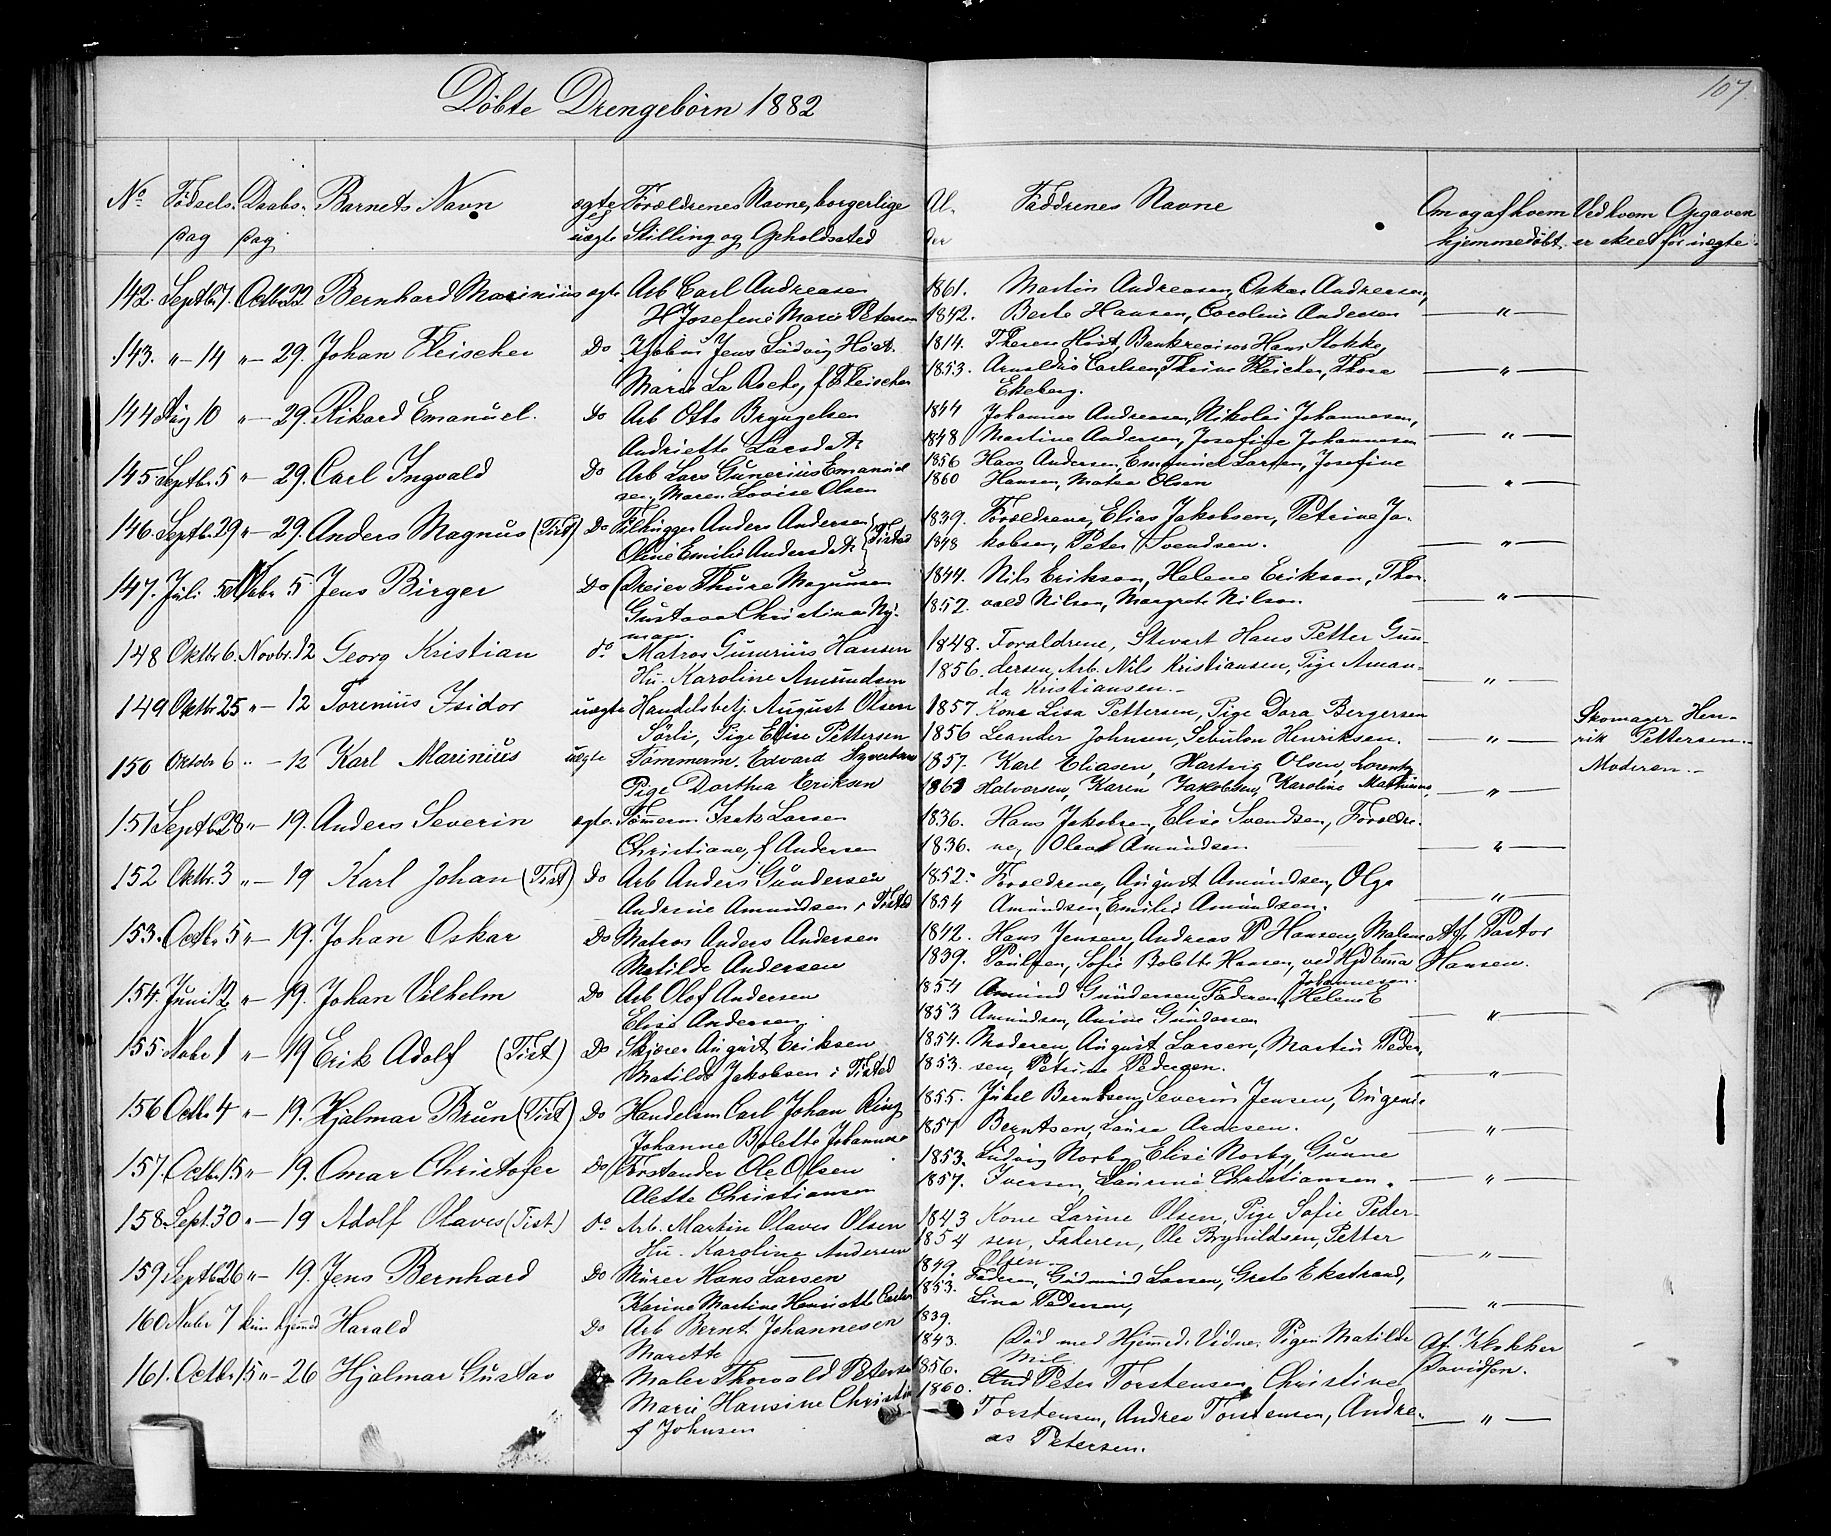 107.
Döbte Drengebörn 1882
No Födsels- Daabs- Barnets Navn ægte Forældrenes Navne, borgerlige Al- Faddrenes Navne Om og af hvem Ved hvem Opgaven
dag dag el uægte Stilling og Opholdssted der hjemmedöbt er skeet for uægte
142. Septbr 7. Octbr 22 Bernhard Marinius ægte Arb Carl Andreasen 1861. Martin Andreasen, Oskar Andreasen,
H Josefine Marie Petersen 1842. Berte Hansen, Caroline Andersen — " —
143. " — 14 " — 29. Johan Fleischer Do Kjöbm Jens Ludvig Höst. 1814. Therese Höst, Bankrevisor Hans Stokke,
Marie La Roche, f Fleischer 1853. Carlsen, Fleicher, Thora — " —
Ekeberg.
144 Aug 10 " — 29. Rikard Emanuel. Do Arb Otto Bryngelsen 1844 Johannes Andreasen, Nikolai Johannesen,
Andriette Larsdatr 1848 Martine Andersen, Josefine Johannesen — " —
145 Septbr 5 " — 29. Carl Ingvald Do Arb Lars Gunerius Emanuel 1856 Hans Andersen, Emanuel Larsen, Josefine
sen, Maren Lovise Olsen 1860 Hansen, Matea Olsen — " —
146. Septb 29 " — 29. Anders Magnus (Tist) Do Filhugger Anders Andersen 1839. Forældrene, Elias Jakobsen, Petrine Ja-
Oline Emilie Andersdatr Tisted 1848 kobsen, Peter Svendsen. — " —
147. Juli Nvbr 5 Jens Birger Do Dreier Thure Magnusen 1844. Nils Erikson, Helene Erikson, Thor-
Gustava Christina Ny- 1852. vald Nilson, Margrete Nilson. — " —
man.
148 Oktbr 6. Novbr. 12 Georg Kristian do Matros Gunerius Hansen 1848. Forældrene, Stevart Hans Petter Gun-
Hu. Karoline Amundsen 1856. dersen, Arb. Nils Kristiansen, Pige Aman-
da Kristiansen. — " —
149 Oktbr 25 " — 12 Torenius Isidor uægte Handelsbetj. August Olsen 1857 Kone Lisa Pettersen, Pige Dora Bergersen Skomager Hen-
Sörli, Pige Elise Pettersen 1856 Leander Johnsen, Sebulon Henriksen. — " — rik Pettersen.
150 Oktobr 6 " — 12 Karl Marinius uægte Tömmerm. Edvard 1857. Karl Eliasen, Hartvig Olsen, Lorentz Moderen.
Pige Dorthea Eriksen Halvorsen, Karen Jakobsen, Karoline — " —
151 Septb 28 " — 19. Anders Severin ægte Tömerm Larsen 1836. Hans Jakobsen, Elise Svendsen, Forældre-
Christiane, f Andersen 1836. ne, Olava Amundsen — " —
152 Oktbr. 3 " — 19 Karl Johan (Tist) Do Arb Anders Gundersen 1852. Forældrene, August Amundsen, Olga
Andrine Amundsen i Tisted 1854 Amundsen, Emilie Amundsen. — " —
153. Octbr 5 " — 19. Johan Oskar Do Matros Anders Andersen 1842. Hans Jensen, Andreas P Hansen, Malene Af Pastor
Matilde Andersen 1839. Paulsen, Sofie Bolette Hansen, ved Hjd Hansen.
154. Juni 12 " — 19. Johan Vilhelm Do Arb Olof Andersen 1854 Amund Gundersen, Faderen, Helene E Johannesen.
Elise Andersen 1853 Amundsen, Anine Gundersen — " —
155 Nvbr 1 " — 19 Erik Adolf (Tist) Do Skjörer August Eriksen 1854. Moderen, August Larsen, Martin Peder-
Matilde Jakobsen i Tisted 1853. sen, Petrine Pedersen. — " —
156 Octbr 4 " — 19. Hjalmar Brun (Tist) Do Handelsm Carl Johan Ring 1855. Berntsen, Severin Jensen, Eugenie
Johanne Bolette 1857 Berntsen, Laura — " —
157. Octbr 15 " — 19. Omar Christofer Do Forstander Ole Olsen 1853. Ludvig Norby, Elise Norby, Gunne
Alette Christiansen 1857. Iversen, Laurine Christiansen. — " —
158. Sept. 30 " — 19 Adolf Olaves (Tist) do Arb. Martin Olaves Olsen 1843 Kone Larine Olsen, Pige Sofie Peder-
Hu. Karoline Andersen 1854 sen, Faderen, Ole Brynildsen, Petter
Olsen. — " —
159 Septb 26 " — 19. Jens Bernhard Do Murer Hans Larsen 1849. Faderen, Gudmund Larsen, Grete Ekstrand,
Karine Martine Henriette 1853. Lina Pedersen, — " —
160 Nvbr 7 kun hjemmed Harald Do Arb Bernt Johannesen 1839.
Marette — 1843. Död med Hjemmed. Vidne: Pigen Matilde Af Klokker
Davidsen.
161. Octbr 15 " — 26 Hjalmar Gustav Maler Thorvald Petersen 1856. Peter Torstensen, Christine
Marie Hansine 1860. Torstensen, Andrea Torstensen, Andre- — " —
f Johnsen as Petersen.